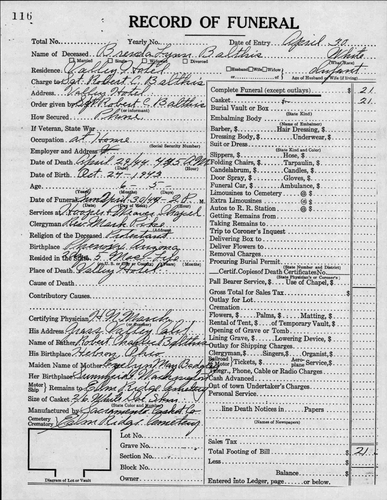 116
RECORD OF FUNERAL
Total No. Yearly No. Date of Entry April 30
Name of Deceased Brenda Lynn Balthis White
Married Single Widowed Divorced (What Race)
Residence Valley Hotel Infant
Charge to Sgt. Robert C. Balthis
Address Valley Hotel
Order given by Sgt Robert C. Balthis
How Secured Phone
If Veteran, State War
Occupation at Home
(Social Security Number)
Employer and Address
Date of Death April 28/44 4:45 A.M.
Date of Birth Oct. 24 - 1943
Age 6 5
Date of Funeral
Services at Hooper Weaver Chapel
Clergyman Rev.
Religion of the Deceased Protestant
Birthplace Phoenix Arizona
Resided in the State 5 Mos.
Place of Death Valley Hotel
Cause of Death
Contributory Causes
Certifying Physician
His Address Grass Valley Calif
Name of Father Robert Charles Balthis
His Birthplace Hebron Ohio
Maiden Name of Mother
Her Birthplace Washington
Remains to Elm Ridge Cemetery
Size of Casket 2/6 White
Manufactured by Sacramento Casket Co.
Cemetery Crematory Elm Ridge Cemetery
Lot No.
Grave No.
Section No.
Block No.
Owner
Diagram of Lot or Vault
Complete Funeral (except outlays) $ 21
Casket 21
Burial Vault or Box
(State Kind)
Embalming Body
(Name of Embalmer)
Barber, $ Hair Dressing, $
Dressing Body, $ Underwear, $
Suit or Dress
(State Kind and Color)
Slippers, $ Hose, $
Folding Chairs, $ Tarpaulin, $
Candelabrum, $ Candles, $
Door Spray, $ Gloves, $
Funeral Car, $ Ambulance, $
Limousines to Cemetery @ $
Extra Limousines @ $
Autos to R. R. Station @ $
Getting Remains from
Taking Remains to
Trip to Coroner's Inquest
Delivering Box to
Deliver Flowers to
Removal Charges
Procuring Burial Permit
(State Number and District)
Certif. Copies of Death Certificates No.
(State Physician's or Coroner's)
Pall Bearer Service, $ Use of Chapel, $
Gross Total for Sales Tax $
Outlay for Lot
Cremation
Flowers, $ Palms, $ Matting, $
Rental of Tent, $ of Temporary Vault, $
Opening of Grave or Tomb
Lining Grave, $ Lowering Device, $
Outlay for Shipping Charges
Clergyman, $ Singers, $ Organist, $
Railroad Tickets, $ Aeroplane Service, $
Telegr., Phone, Cable or Radio Charges
Cash Advanced
Out of town Undertaker's Charges
Personal Service
line Death Notices in Papers
(Names of Newspapers)
Sales Tax
Total Footing of Bill $ 21
Less
Balance $
Entered into Ledger, page or below.